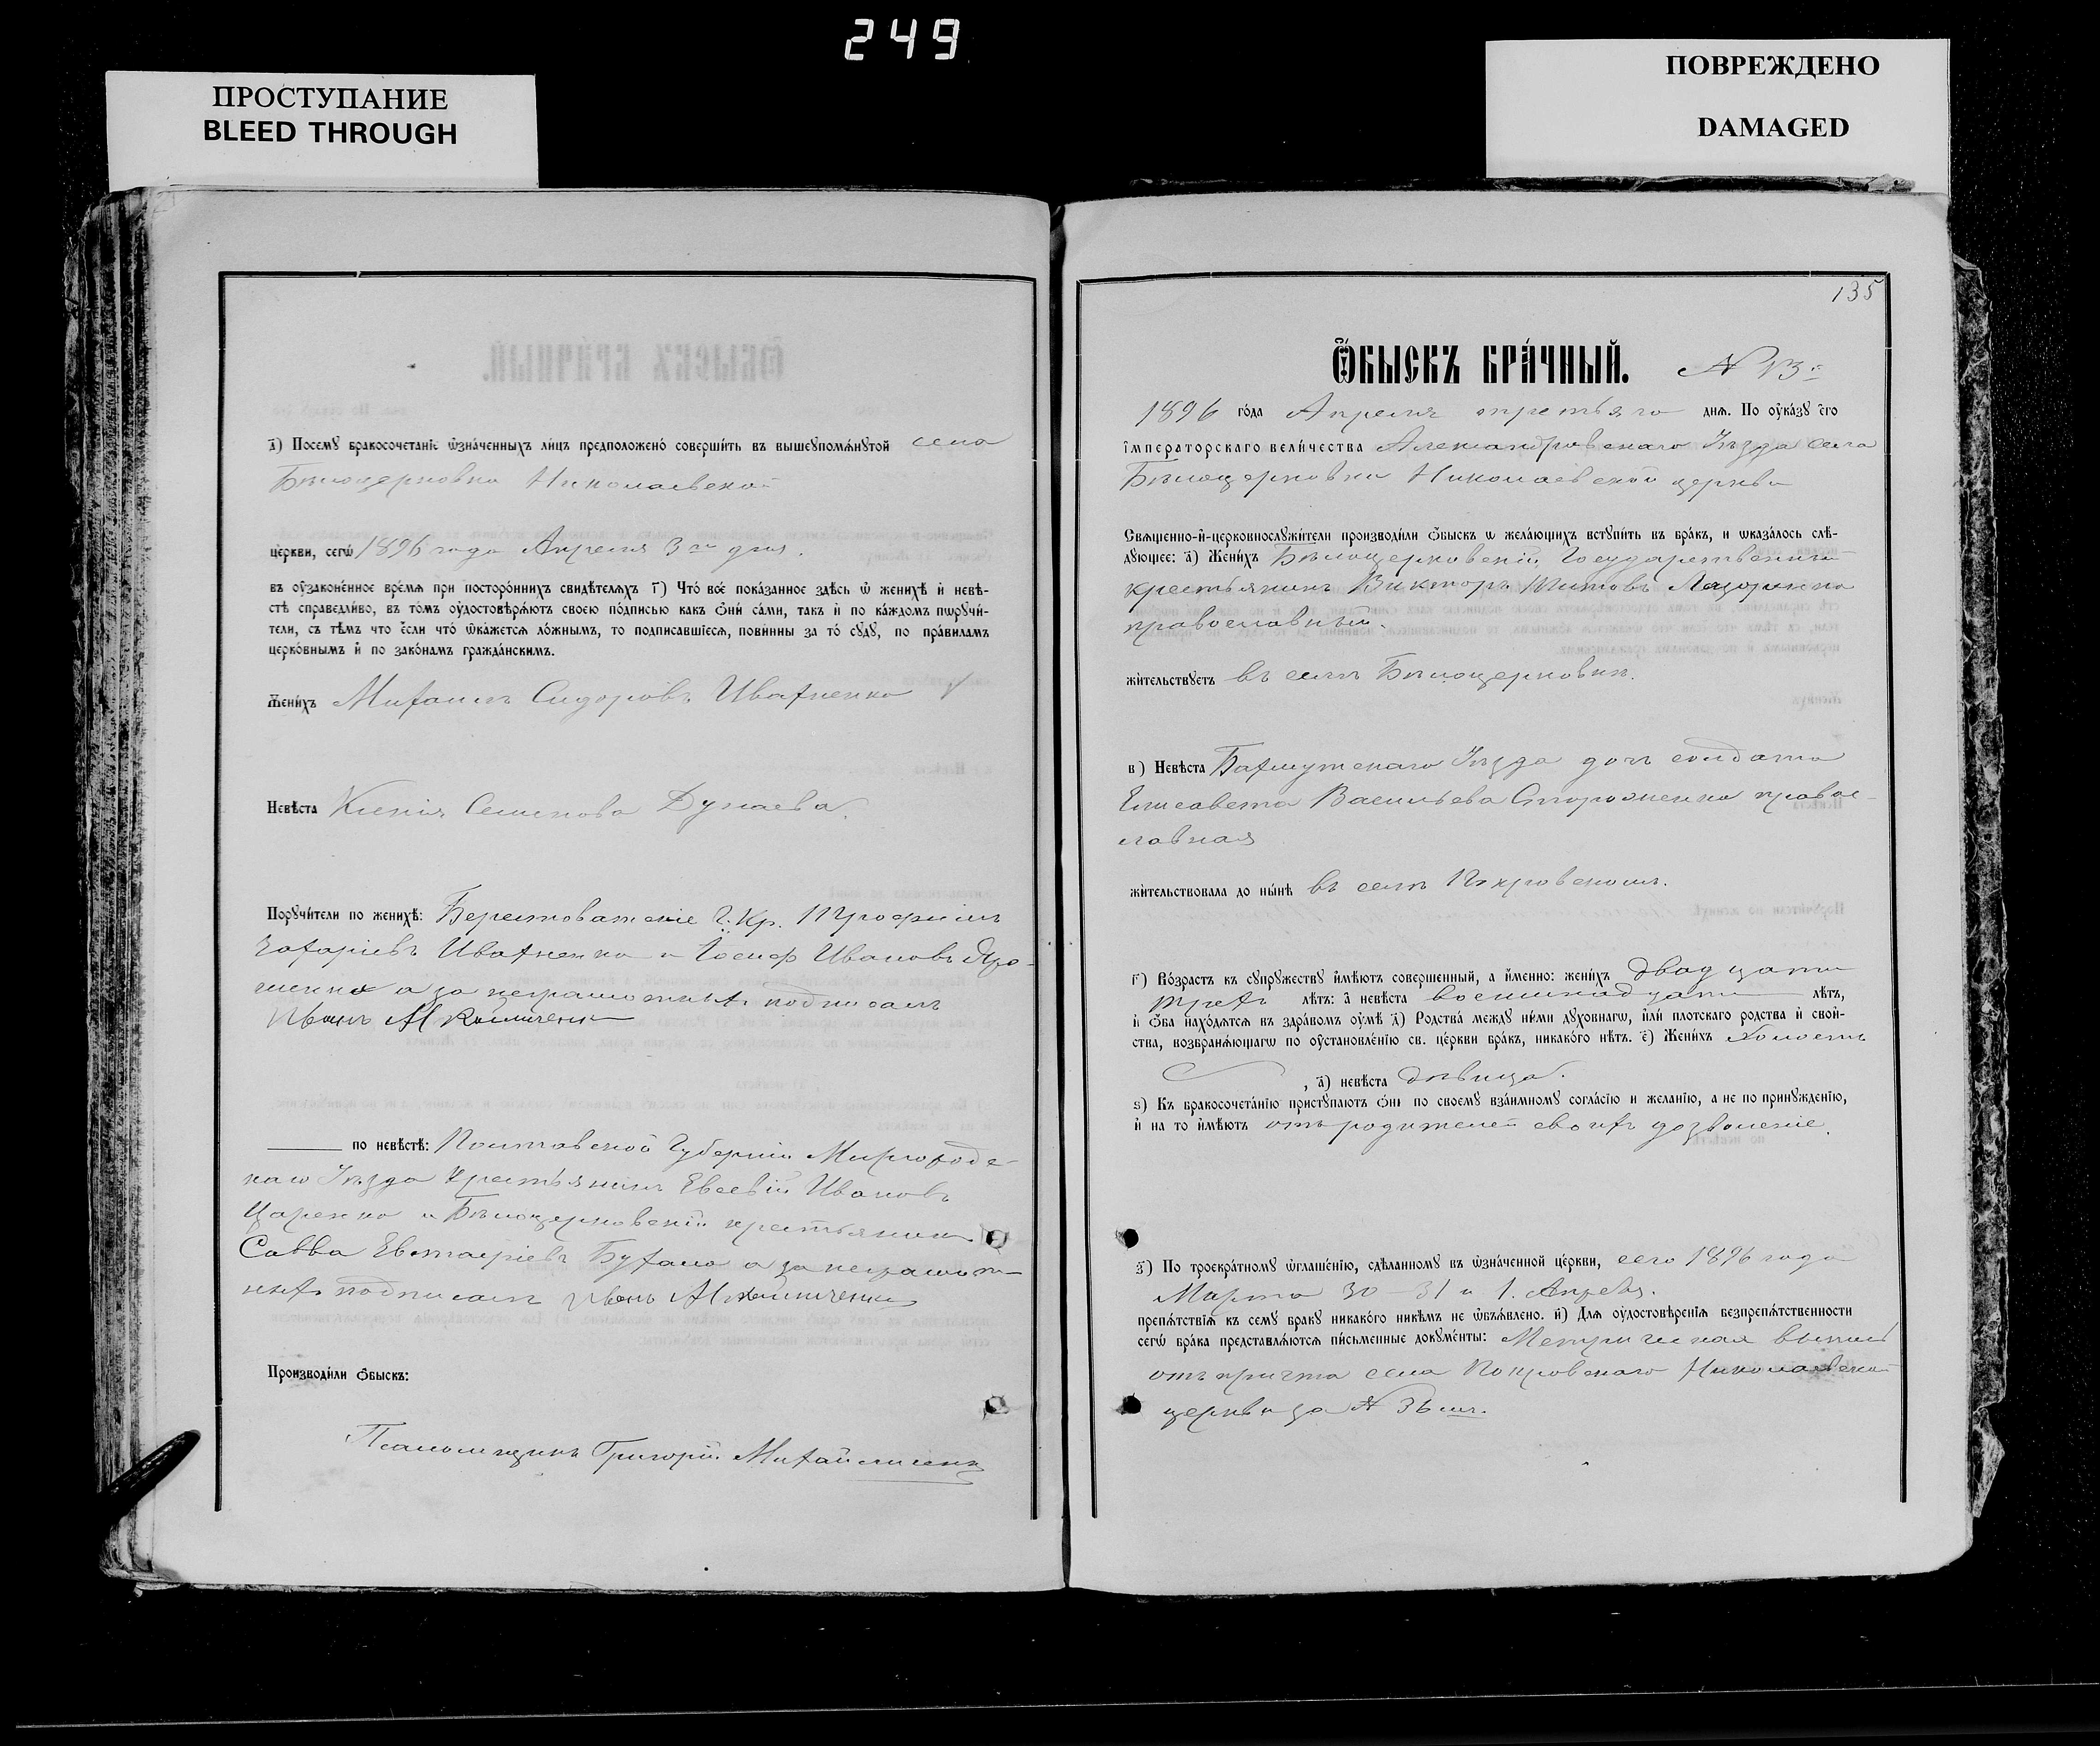 249
ПРОСТУПАНИЕ
BLEED THROUGH
ПОВРЕЖДЕНО
DAMAGED
д҃) Посемꙋ бракосочетанїе ѡ҆зна́ченныхъ ли́цъ предположено̀ соверши́ть въ вышеꙋпомѧ́нꙋтой села
Бѣлоцерковки Николаевской
це́ркви, сегѡ̀ 1896 года Апреля 3го дня.
въ ᲂу҆законе́нное вре́мѧ при посторо́ннихъ свидѣ́телѧхъ г҃) Что̀ всѐ пока́занное здѣ́сь ѡ҆ женихѣ̀ и҆ невѣ́-
стѣ справедли́во, въ то́мъ ᲂу҆достовѣрѧ́ютъ своею по́дписью какъ ѻ҆нѝ са́ми, такъ и҆ по ка́ждомъ порꙋчи́-
тели, съ тѣ́мъ что є҆́сли что̀ ѡ҆ка́жетсѧ ло́жнымъ, то подписавшїесѧ, пови́нны за то̀ сꙋдꙋ̀, по пра́виламъ
церко́внымъ и҆ по зако́намъ гражда́нскимъ.
Жени́хъ Михаилъ Сидоровъ Ивахненко
Невѣ́ста Ксенія Семенова Дунаева.
Порꙋчи́тели по женихѣ̀: Берестоватскіе Г. Кр. Трофимъ
Захаріевъ Ивахненко и Іосиф Ивановъ Яро-
шенко а за неграмотныхъ подписалъ
Иванъ
по невѣ́стѣ: Полтавской Губерніи Миргородс-
каго Уѣзда Крестьянинъ Евсевій Ивановъ
Царенко и Бѣлоцерковскій крестьянин
Савва Евстафіевъ Бухало а за неграмот-
ныхъ подписалъ Иванъ
Производи́ли ѻ҆́быскъ:
Псаломщикъ Григорій
135
Ѻ҆́БЫСКЪ БРА́ЧНЫЙ. № 13й
1896 го́да Апреля третьяго днѧ. По ᲂу҆ка́зꙋ є҆гѡ̀
и҆мператорскаго вели́чества Александровскаго Уѣзда села
Бѣлоцерковки Николаевской церкви
Свѧще́нно-и҆-церковнослꙋжи́тели производи́ли ѻ҆́быскъ ѡ҆ жела́ющихъ встꙋпи́ть въ бра́къ, и ѡ҆каза́лось слѣ́-
дꙋющее: а҃) Жени́хъ Бѣлоцерковскій Государственный
крестьянинъ Викторъ Титовъ Лазоренко
православный.
жи́тельствꙋетъ въ селѣ Бѣлоцерковкѣ.
в҃) Невѣ́ста Бахмутскаго Уѣзда дочь солдата
Елисавета Васильева Стороженко правос-
лавная
жи́тельствовала до ны́нѣ въ селѣ Покровскомъ.
г҃) Во́зрастъ къ сꙋпрꙋ́жествꙋ и҆мѣ́ютъ совершенный, а и҆́менно: жени́хъ двадцати
трехъ лѣ́тъ: а҆ невѣ́ста восьмнадцати лѣ́тъ,
и҆ ѻ҆́ба нахо́дѧтсѧ въ здра́вомъ ᲂу҆мѣ̀ д҃) Родства̀ междꙋ ни́ми дꙋховнагѡ, и҆лѝ плотскаго родства и҆ свой-
ства, возбранѧ́ющагѡ по ᲂу҆становле́нїю св. це́ркви бра́къ, никако́го нѣ́тъ. є҃) Жени́хъ холостъ
, а҃) невѣ́ста дѣвица.
ѕ҃) Къ бракосочета́нїю пристꙋпаютъ ѻ҆нѝ по своемꙋ вза́имномꙋ согла́сїю и желанїю, а не по принꙋжденїю,
и҆ на то и҆мѣ́ютъ отъ родителей своихъ дозволеніе.
з҃) По троекра́тномꙋ ѡ҆глаше́нїю, сдѣланномꙋ въ ѡ҆зна́ченной це́ркви, сего 1896 года
Марта 30 – 31 и 1. Апреля.
препѧ́тствїѧ къ семꙋ̀ бракꙋ никако́го никѣ́мъ не ѡ҆бъѧ́влено. и҃) Длѧ ᲂу҆достовѣ́ренїѧ безпрепѧ́тственности
сегѡ̀ бра́ка представлѧ́ютсѧ пи́сьменные докꙋме́нты: Метрическая выпись
отъ причта села Покровскаго Николаевской
церкви за №